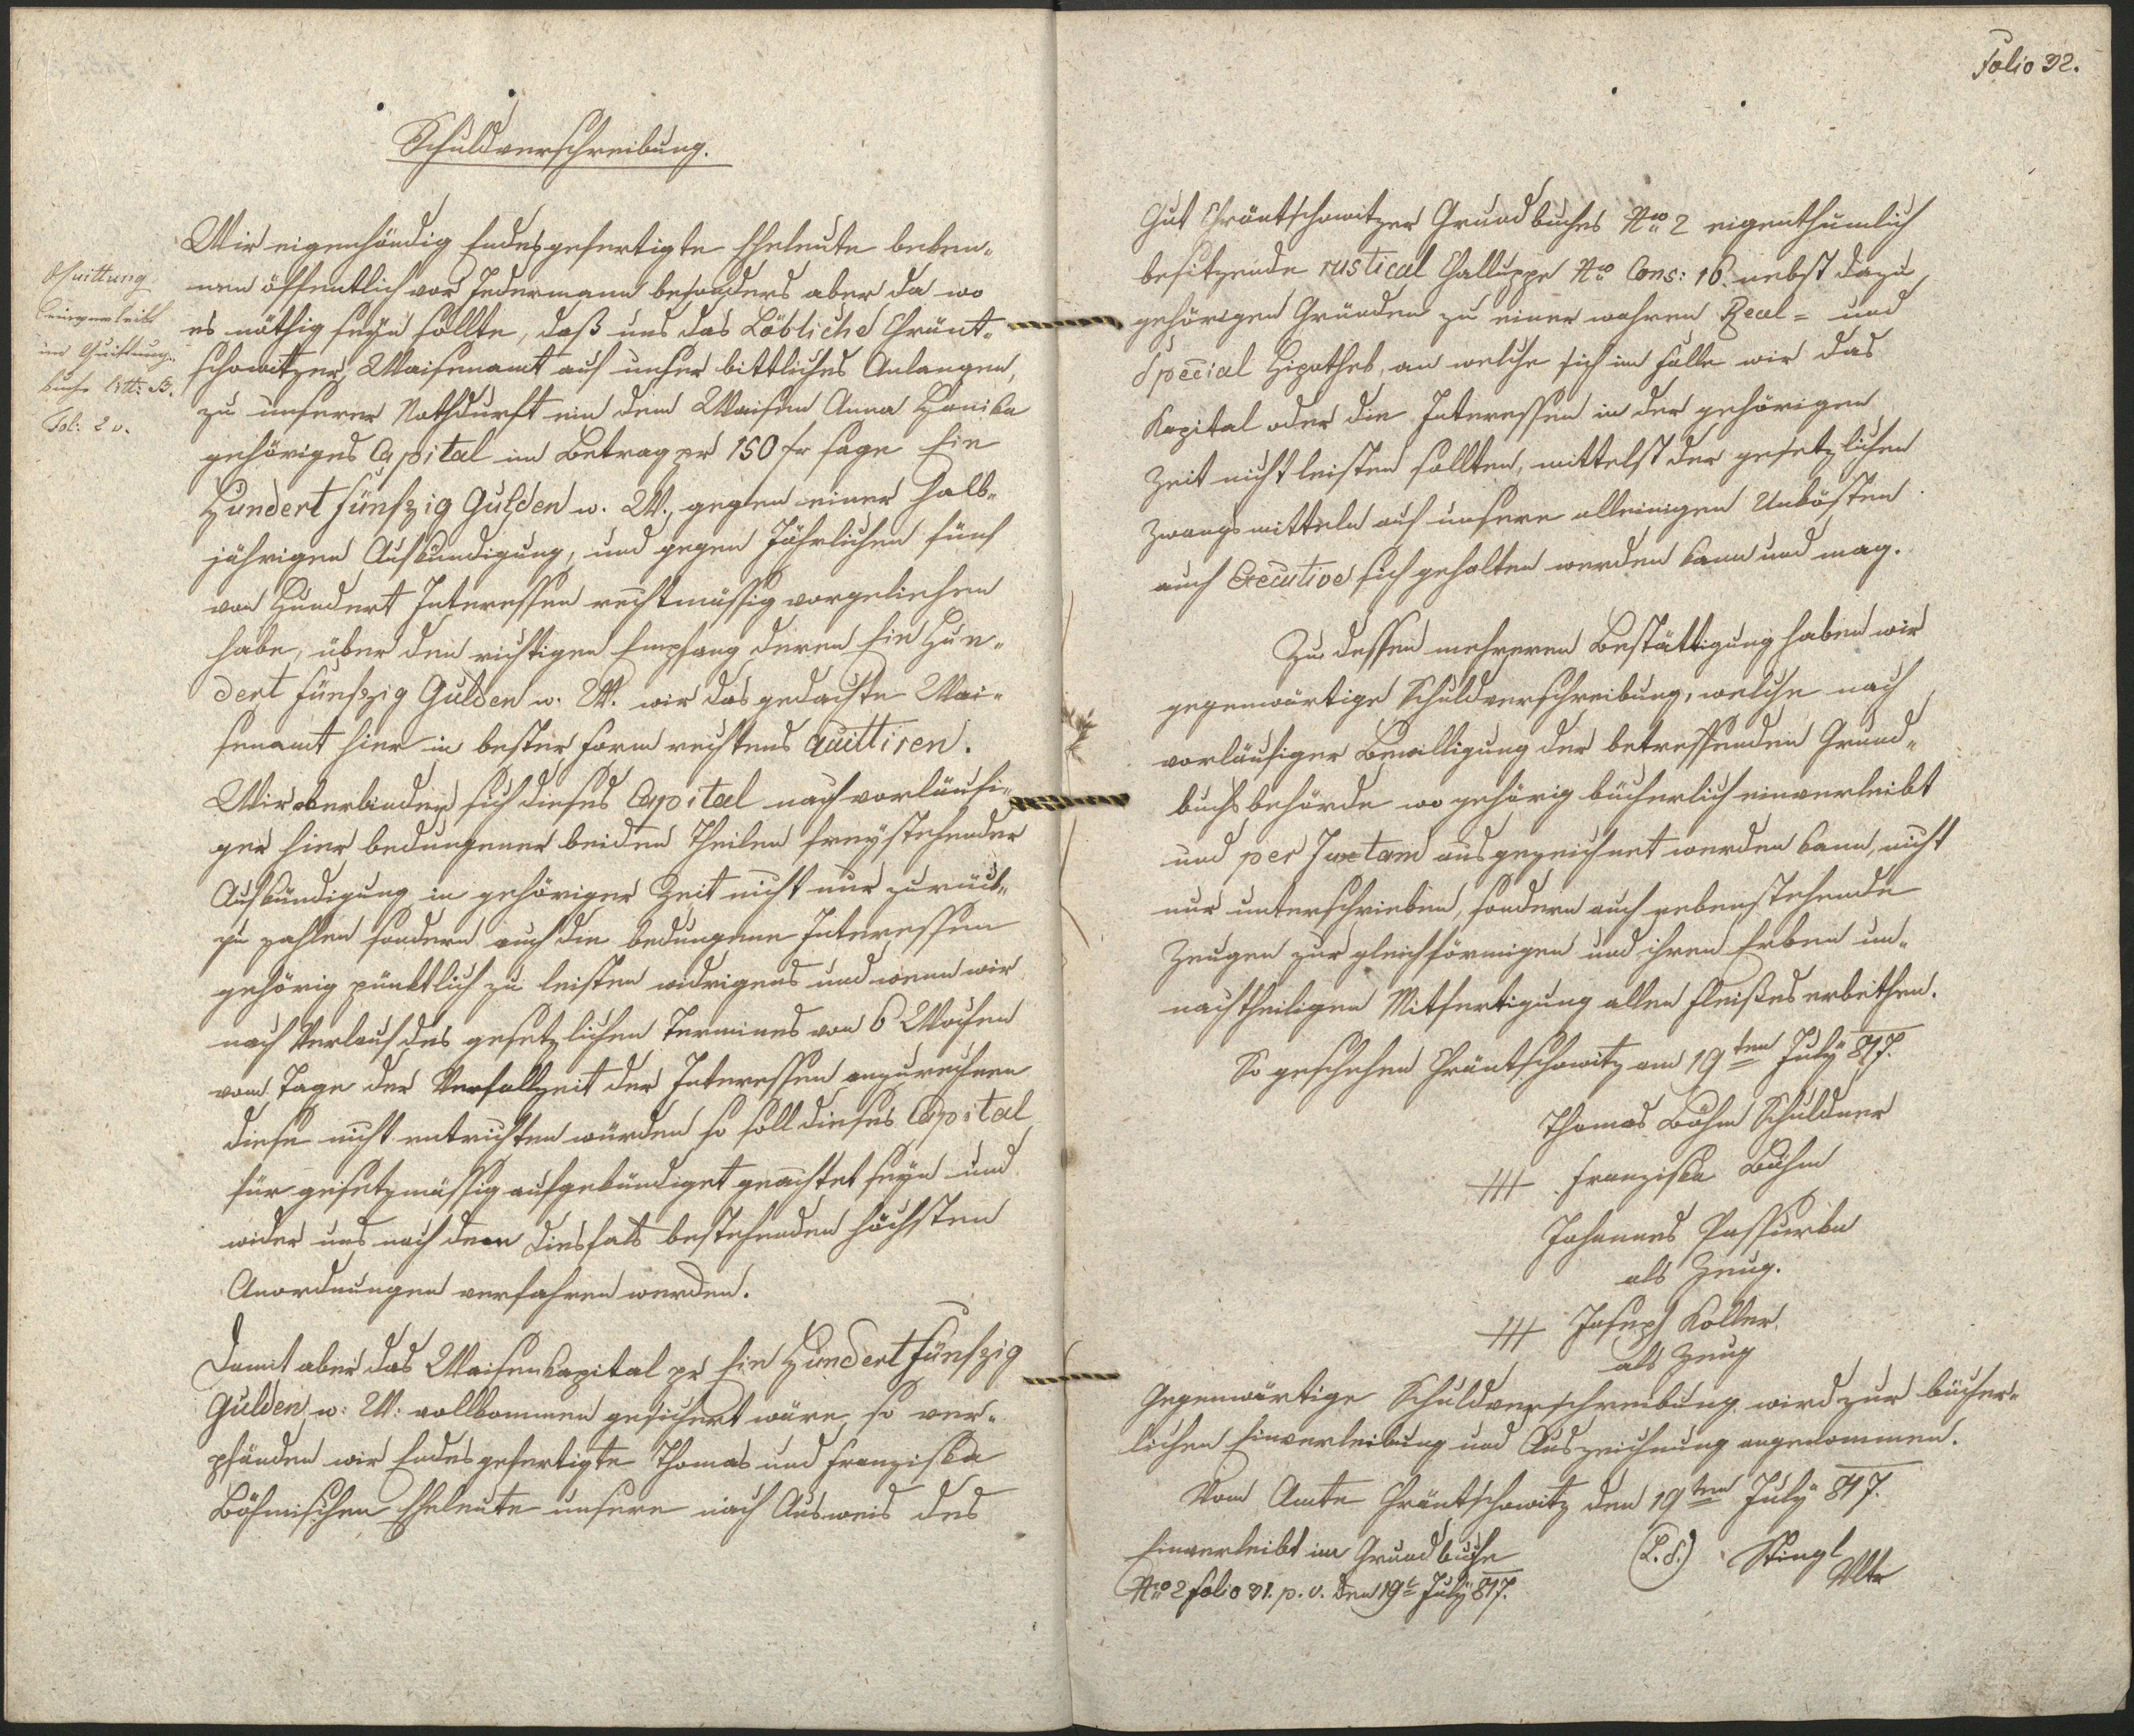 Schuldverschreibung.
Wir eigenhändig Endesgefertigte Eheleute beken-
nen öffentlich vor Jedermann besonders aber da wo
es nöthig seyn sollte, daß uns das Löbliche Chränt-
schowitzer Waisenamt auf unser bittliches Anlangen,
zu unserer Nothdurft ein dem Waisen Anna Honika
gehöriges Capital im Betrag pr 150 fr sage Ein
Hundert fünfzig Gulden w. W., gegen einer halb-
jährigen Aufkundigung, und gegen Jährlichen fünf
von Hundert Interessen rechtmässig vorgeliehen
habe, über den richtigen Empfang deren Ein Hun-
dert fünfzig Gulden w. W. wir das gedachte Wai-
senamt hier in bester Form rechtens quittiren.
Wir verbinden sich dieses Capital nach vorläufi-
ger hier bedungener beiden Theilen freystehender
Aufkündigung in gehöriger Zeit nicht nur zurück-
zu zahlen sondern auch die bedungene Interessen
gehörig pünktlich zu leisten widrigens und wenn wir
nach Verlauf des gesetzlichen Termines von 6 Wochen
vom Tage der Verfallzeit der Interessen anzurechnen
diese nicht entrichten würden so soll dieses Capital
für gesetzmässig aufgekündiget geachtet seyn und
wider uns nach denn diesfals bestehenden höchsten
Anordnungen verfahren werden.
Damit aber das Waisenkapital pr Ein Hundert fünfzig
Gulden w: W: vollkommen gesichert wäre, so ver-
pfänden wir Endesgefertigte Thomas und Franziska
Böhmischen Eheleute unsere nach Ausweis des
Quittung
einverleibt
im Quittungs-
buche litt: B.
Fol: 2 v.
Folio 32.
Gut Chräntschowitzer Grundbuches Nro 2 eigenthumlich
besitzende rustical Challuppe Nro Cons: 16. nebst dazu
gehörigen Gründen zu einer wahren Real- und
Special Hipothek, an welche sich im Falle wir das
Kapital oder die Interessen in der gehörigen
Zeit nicht leisten sollten, mittelst der gesetzlichen
Zwangsmitteln auf unsere alleinigen Unkösten
auch Executive sich gehalten werden kann und mag.
Zu dessen mehreren Bestättigung haben wir
gegenwärtige Schuldverschreibung, welche nach
vorläufiger Bewilligung der betreffenden Grund-
buchsbehörde wo gehörig bücherlich einverleibt
und per Juxtam ausgezeichnet werden kann, nicht
nur unterschrieben, sondern auch nebenstehende
Zeugen zur gleichförmigen und ihren Erben un-
nachtheiligen Mitfertigung allen Fleißes erbethen.
So geschehen Chräntschowitz am 19ten July 817.
Thomas Böhm Schuldner
+++ Franziska Böhm
Johannes Passurka
als Zeug.
+++ Joseph Koller
als Zeug
Gegenwärtige Schuldverschreibung wird zur bücher-
lichen Einverleibung und Auszeichnung angenommen.
Vom Amte Chräntschowitz den 19ten July 817.
(L.S.) Stingl
Vltr
Einverleibt im Grundbuche
Nro 2 folio 31. p. v. den 19t July 817.